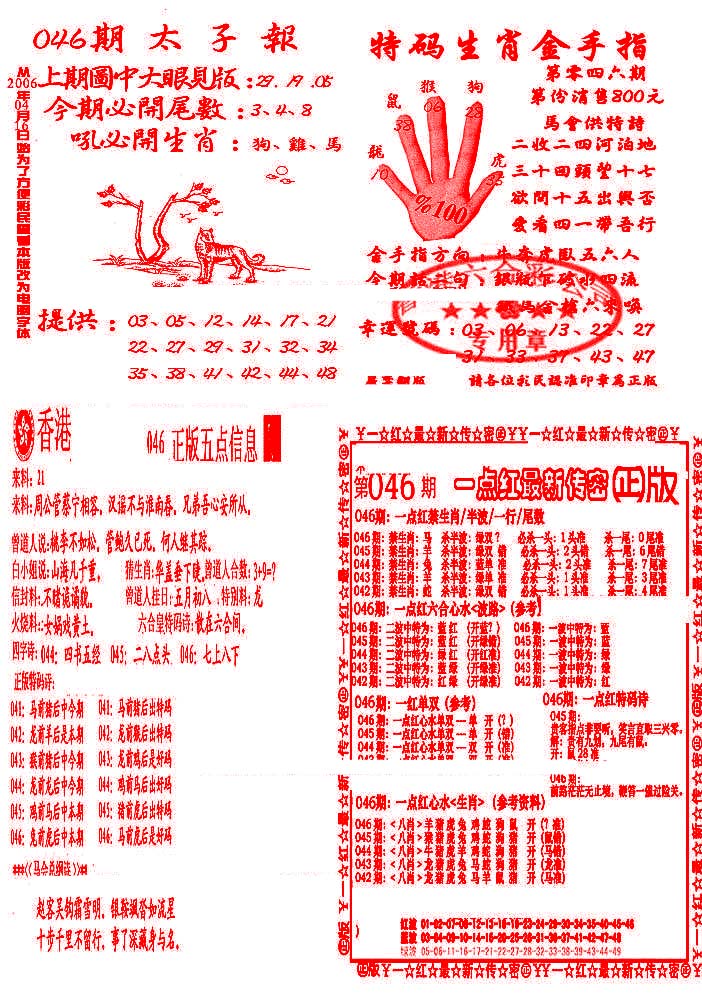 046期太子報
从2006年04月16日始为了方便彩民图画本版改为电脑字体
上期圖中大眼見版：29.19.05
今期必開尾數：3、4、8
吼必開生肖：狗、雞、馬
提供：03、05、12、14、17、21
22、27、29、31、32、34
35、38、41、42、44、48
特码生肖金手指
第零四六期
第份消售800元
馬會供特詩
二收二四河泊地
三十回頭望十七
欲問十五出與否
愛看四一帶吾行
鼠
38
猴
06
狗
28
龍
10
虎
%100
金手指方向：牛奔虎臥五六人
幸運號碼：03 06 13、22、27
31 33、37、43、47
專用章
請各位彩民認准印章為正版
香港
046 正版五点信息
来料：21
来料:周公管蔡宁相容，汉谣不与淮南春。兄弟吾心安所从。
曾道人说:桃李不如松。管鲍久已死，何人继其踪。
白小姐说:山海几千重。 猜生肖:华盖垂下睫,曾道人合数:3+9=?
信封料:不睹诡诵貌。 曾道人挂日:五月初八 特别料:龙
火烧料::女娲戏黄土。 六合皇特码诗:散在六合间。
四字诗:044: 四书五经 045: 二八点头 046: 七上八下
正版特码评:
041: 马前猪后中今期 041: 马前猪后出特码
042: 龙前羊后是本期 042: 龙前猴后出特码
043: 猴前猪后中今期 043: 龙前鸡后是好码
044: 龙前虎后中今期 044: 鸡前马后出好码
045: 鸡前马后中本期 045: 猪前虎后出特码
046: 兔前虎后中本期 046: 马前虎后是好码
***《马会总纲诗》**
赵客吴钩霜雪明。银鞍飒沓如流星
十步千里不留行。事了深藏身与名。
¥一☆红☆最☆新☆传☆密㊣¥¥一☆红☆最☆新☆传☆密㊣¥
第046期 一点红最新传密(正)版
046期: 一点红禁生肖/半波/一行/尾数
046期: 禁生肖: 马 杀半波: 绿双? 必杀一头: 1头准 杀一尾: 0尾准
045期: 禁生肖: 羊 杀半波: 绿双 错 必杀一头: 2头错 杀一尾: 6尾错
044期: 禁生肖: 兔 杀半波: 蓝单 准 必杀一头: 2头准 杀一尾: 7尾准
043期: 禁生肖: 羊 杀半波: 绿单 准 必杀一头: 1头准 杀一尾: 3尾准
042期: 禁生肖: 蛇 杀半波: 绿双 错 必杀一头: 1头准 杀一尾: 4尾准
046期: 一点红六合心水<波路>(参考)
046期: 二波中特为: 蓝 红 (开蓝?) 046期: 一波中特为: 蓝
045期: 二波中特为: 蓝 红 (开绿错) 045期: 一波中特为: 蓝
044期: 二波中特为: 绿 红 (开红准) 044期: 一波中特为: 绿
043期: 二波中特为: 蓝 绿 (开绿准) 043期: 一波中特为: 绿
042期: 二波中特为: 红 绿 (开绿准) 042期: 一波中特为: 红
046期: 一红单双(参考)
046期: 一点红心水单双---单 开(?)
045期: 一点红心水单双---单 开(错)
044期: 一点红心水单双---双 开(准)
046期: 一点红特码诗
045期:
解: 贵有九划, 九尾有鼠。
开: 鼠28准
046期:
前路茫茫无止境, 鞭答一值过险关。
046期: 一点红心水<生肖>(参考资料)
046期: <八肖>羊猪虎兔鸡蛇狗鼠 开(?准)
045期: <八肖>猴猪虎兔鸡蛇狗猪 开(鼠错)
044期: <八肖>牛猪虎羊鸡蛇狗猪 开(马错)
043期: <八肖>龙猪虎兔马蛇狗猪 开(龙准)
042期: <八肖>龙猪虎兔马羊鼠猪 开(马准)
红波 01-02-07-08-12-13-18-19-23-24-29-30-34-35-40-45-46
蓝波 03-04-09-10-14-15-20-25-26-31-36-37-41-42-47-48
绿波 05-06-11-16-17-21-22-27-28-32-33-38-39-43-44-49
㊣版¥一☆红☆最☆新☆传☆密㊣¥¥一☆红☆最☆新☆传☆密㊣¥